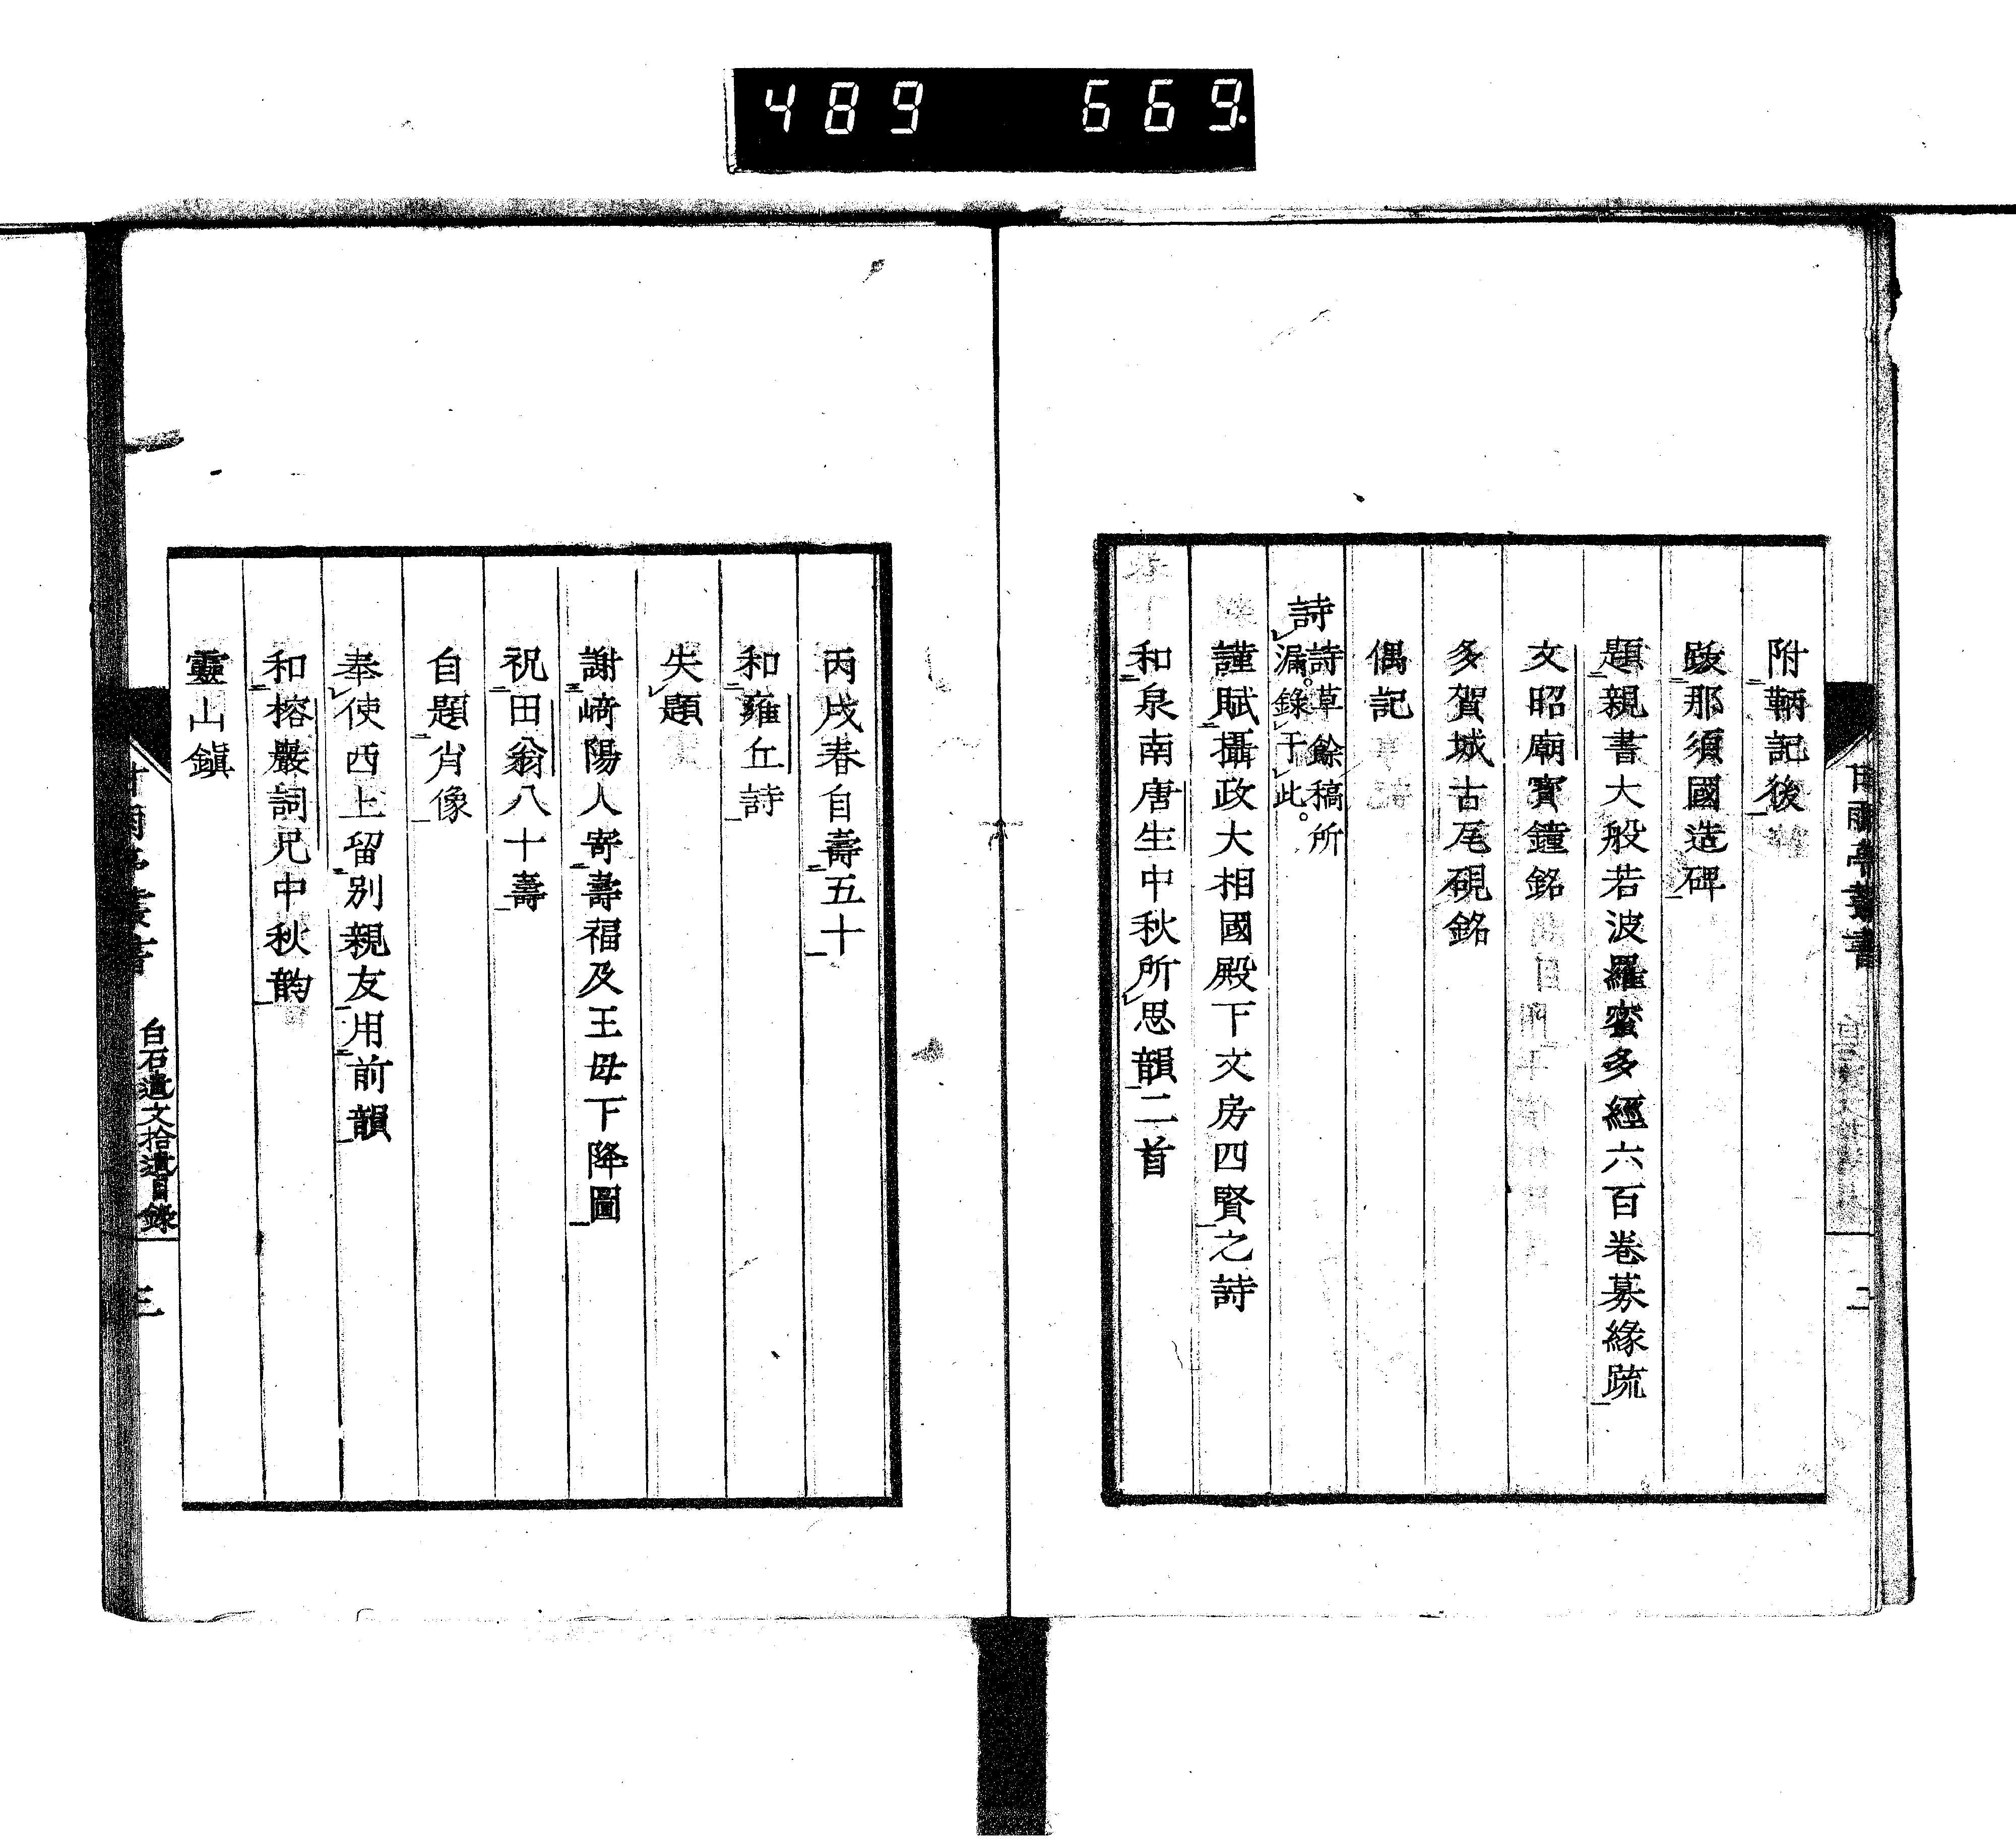 489 669
甘雨亭叢書
二
附鞆記後
跋那須國造碑
題親書大般若波羅蜜多經六百卷募緣疏
文昭廟寶鐘銘
多賀城古瓦硯銘
偶記
詩 詩草餘稿所
漏錄于此。
謹賦攝政大相國殿下文房四賢之詩
和泉南唐生中秋所思韻二首
丙戌春自壽五十
和雍丘詩
失題
謝﨑陽人寄壽福及王母下降圖
祝田翁八十壽
自題肖像
奉使西上留别親友用前韻
和榕巖詞兄中秋韵
靈山鎭
白石遺文拾遺目錄
三